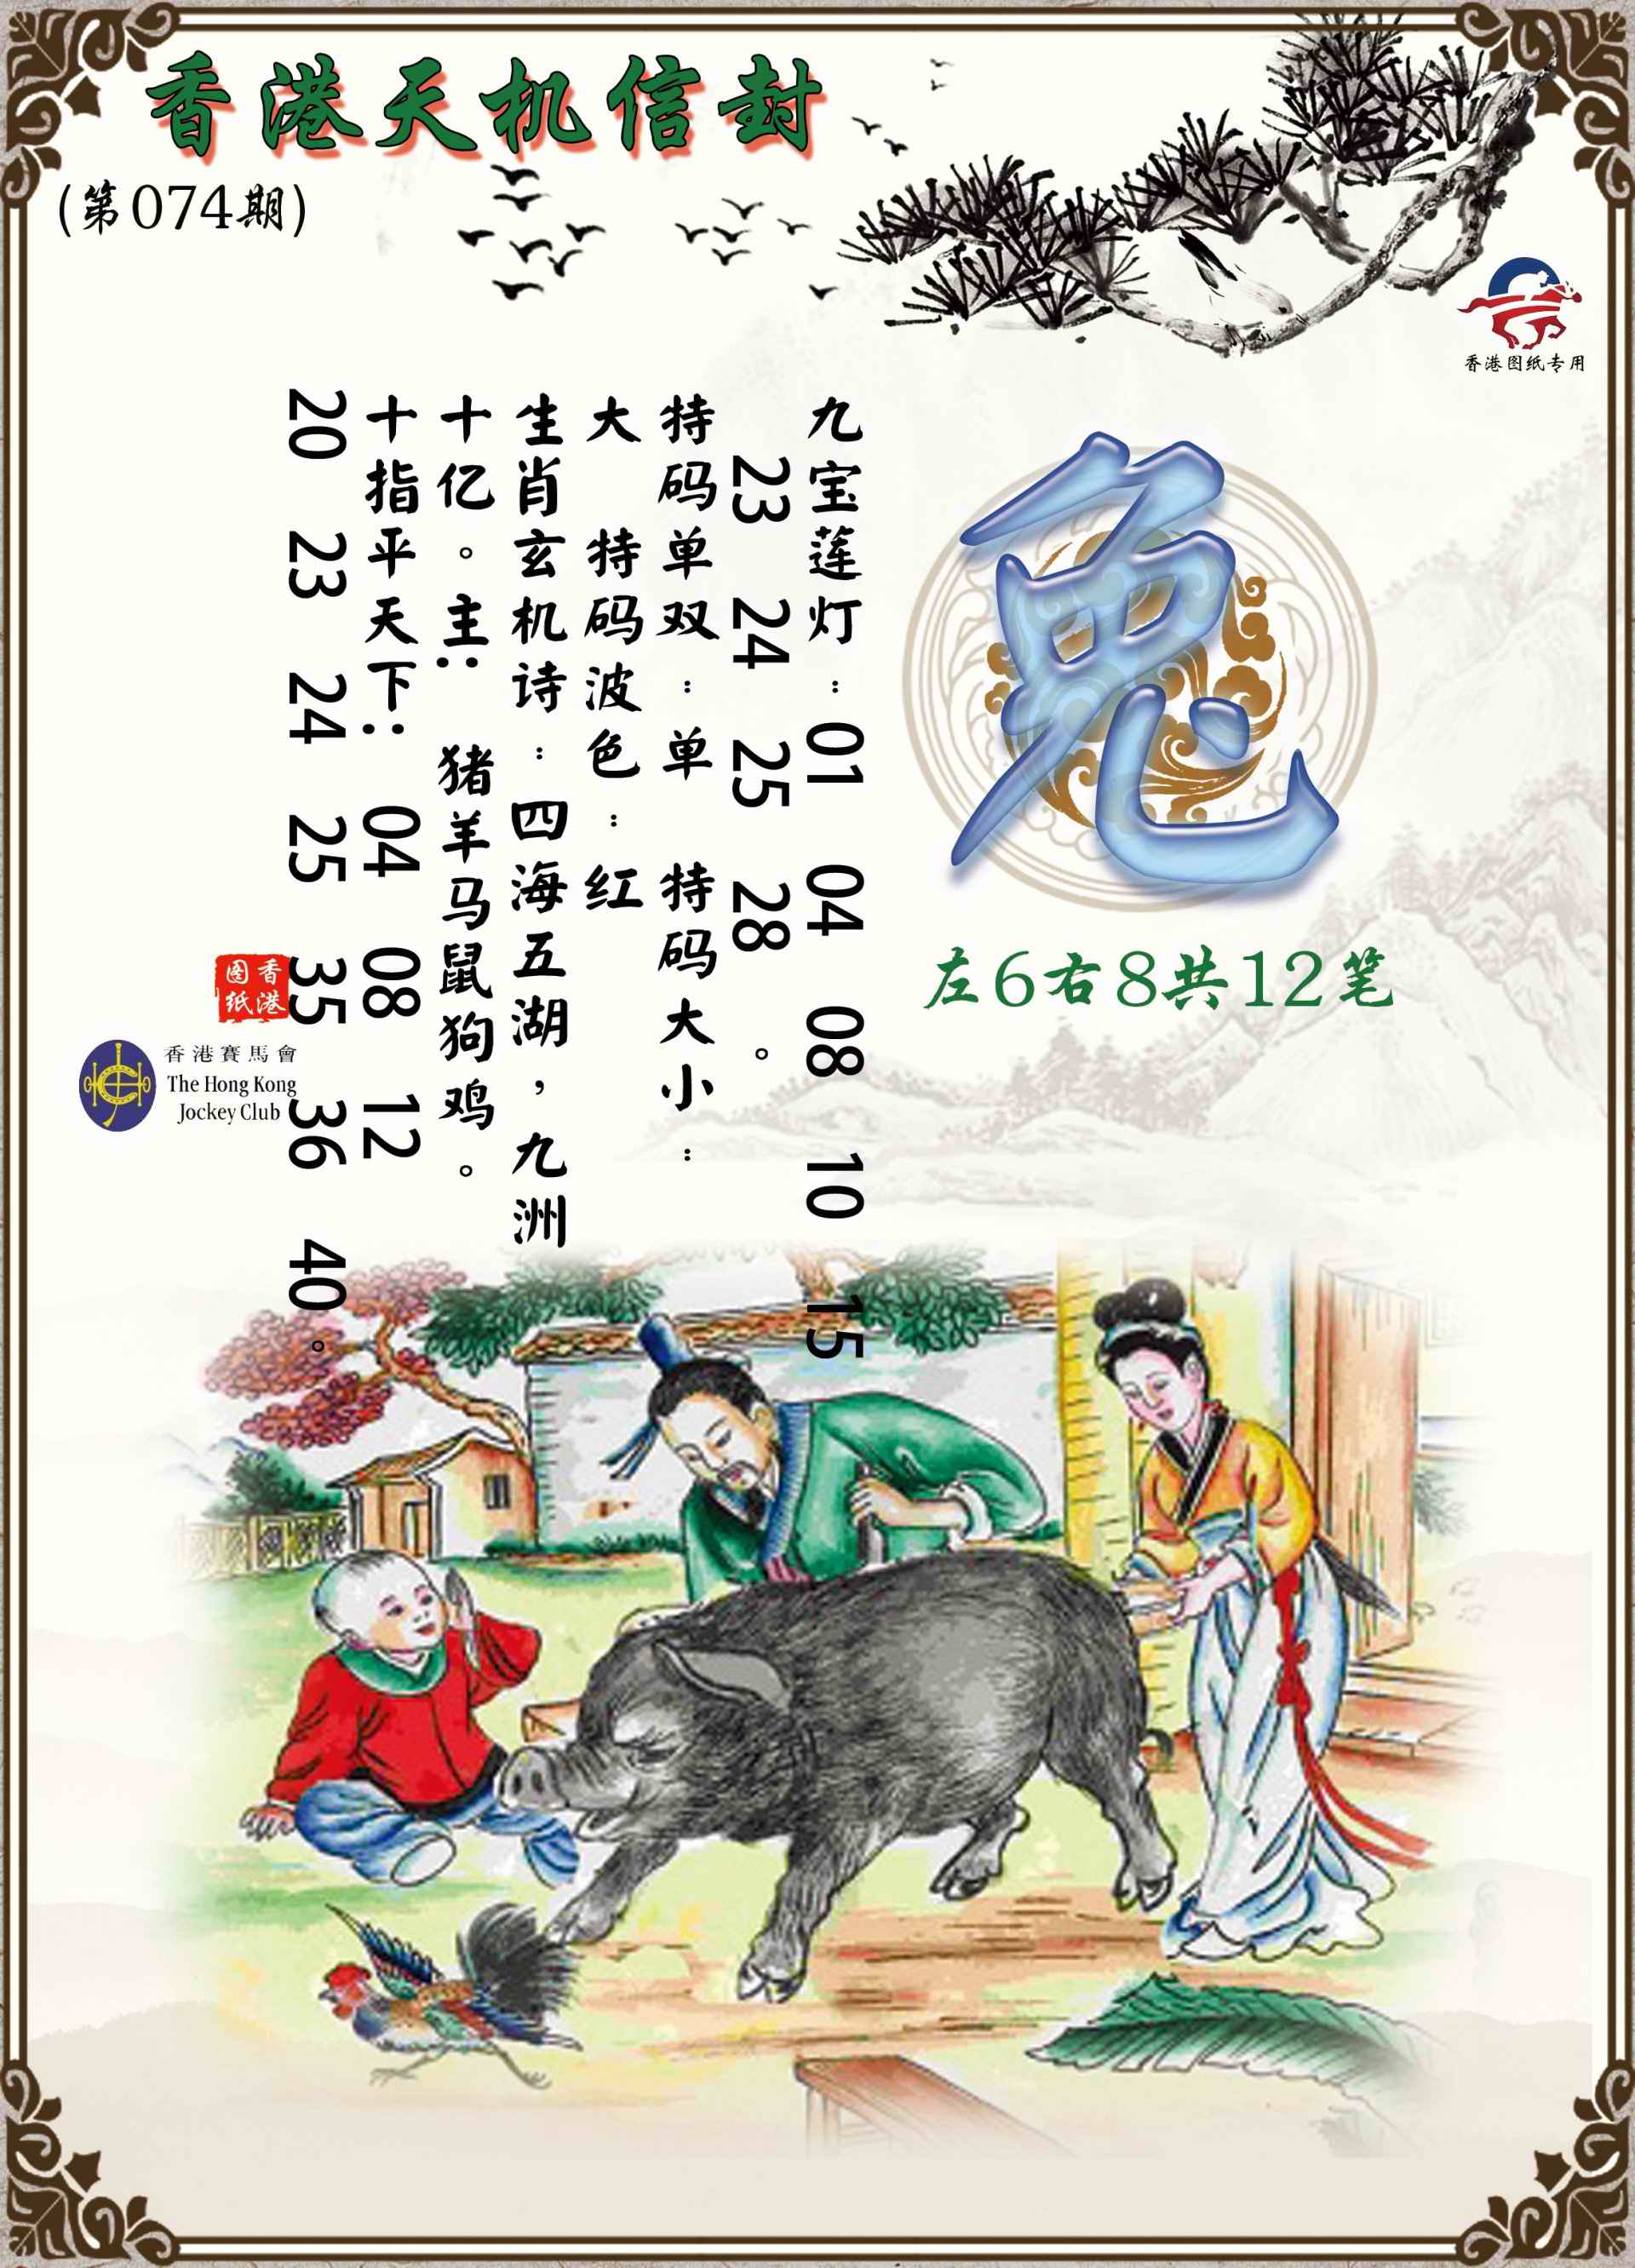 香港天机信封
(第074期)
香港图纸专用
兔
左6右8共12笔
九宝莲灯：01 04 08 10 15
23 24 25 28 。
特码单双：单 特码大小：
大 特码波色：红
生肖玄机诗：四海五湖，九洲
十亿。主: 猪羊马鼠狗鸡。
十指平天下: 04 08 12
20 23 24 25 35 36 40 。
香港
图纸
香港賽馬會
The Hong Kong
Jockey Club